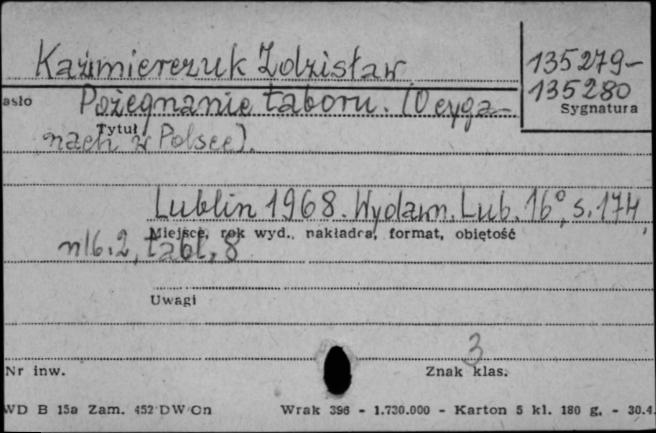 Kaźmierczuk Zdzisław
135279-
135280
Sygnatura
asło
Pożegnanie taboru. (O cyga-
Tytuł
nach w Polsce).
Lublin 1968. Wydawn. Lub. 16°, s. 174,
Miejsce, rok wyd., nakładca, format, objętość
nlb. 2, tabl. 8
Uwagi
3
Nr inw.
Znak klas.
WD B 15a Zam. 452 DW Cn
Wrak 396 - 1.730.000 - Karton 5 kl. 180 g. - 30.4.